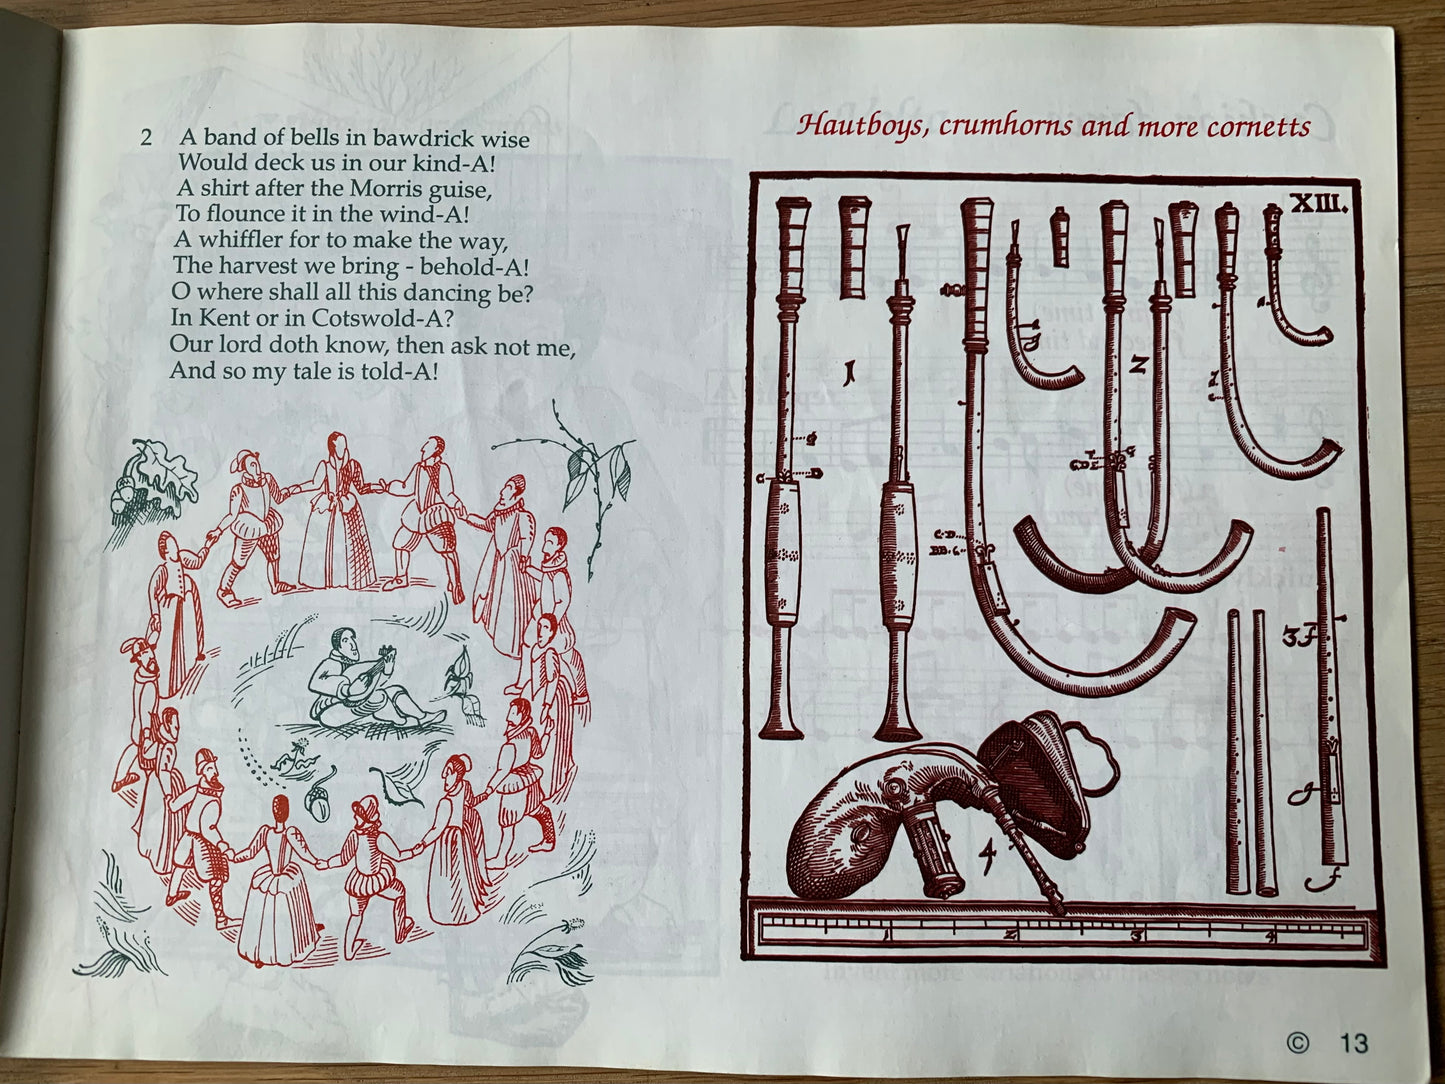 2 A band of bells in bawdrick wise
Would deck us in our kind-A!
A shirt after the Morris guise,
To flounce it in the wind-A!
A whiffler for to make the way,
The harvest we bring - behold-A!
O where shall all this dancing be?
In Kent or in Cotswold-A?
Our lord doth know, then ask not me,
And so my tale is told-A!
Hautboys, crumhorns and more cornetts
XIII.
1
2
C
D
C.D.
BB.C.
3f
4
1 2 3 4
© 13